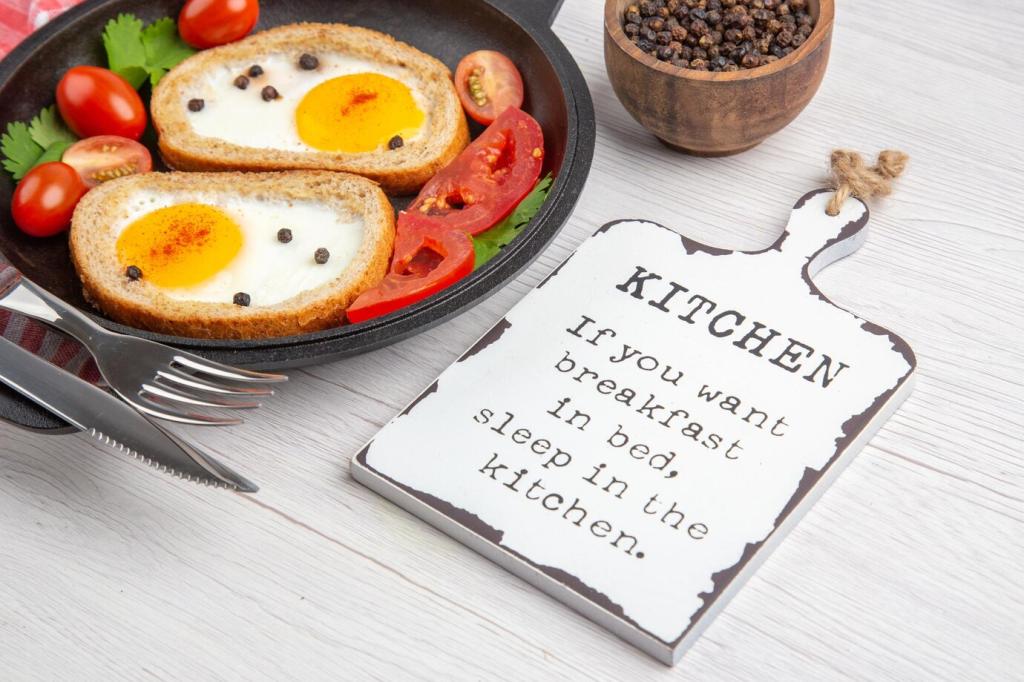 KITCHEN
If you want
breakfast
in bed,
sleep in the
kitchen.